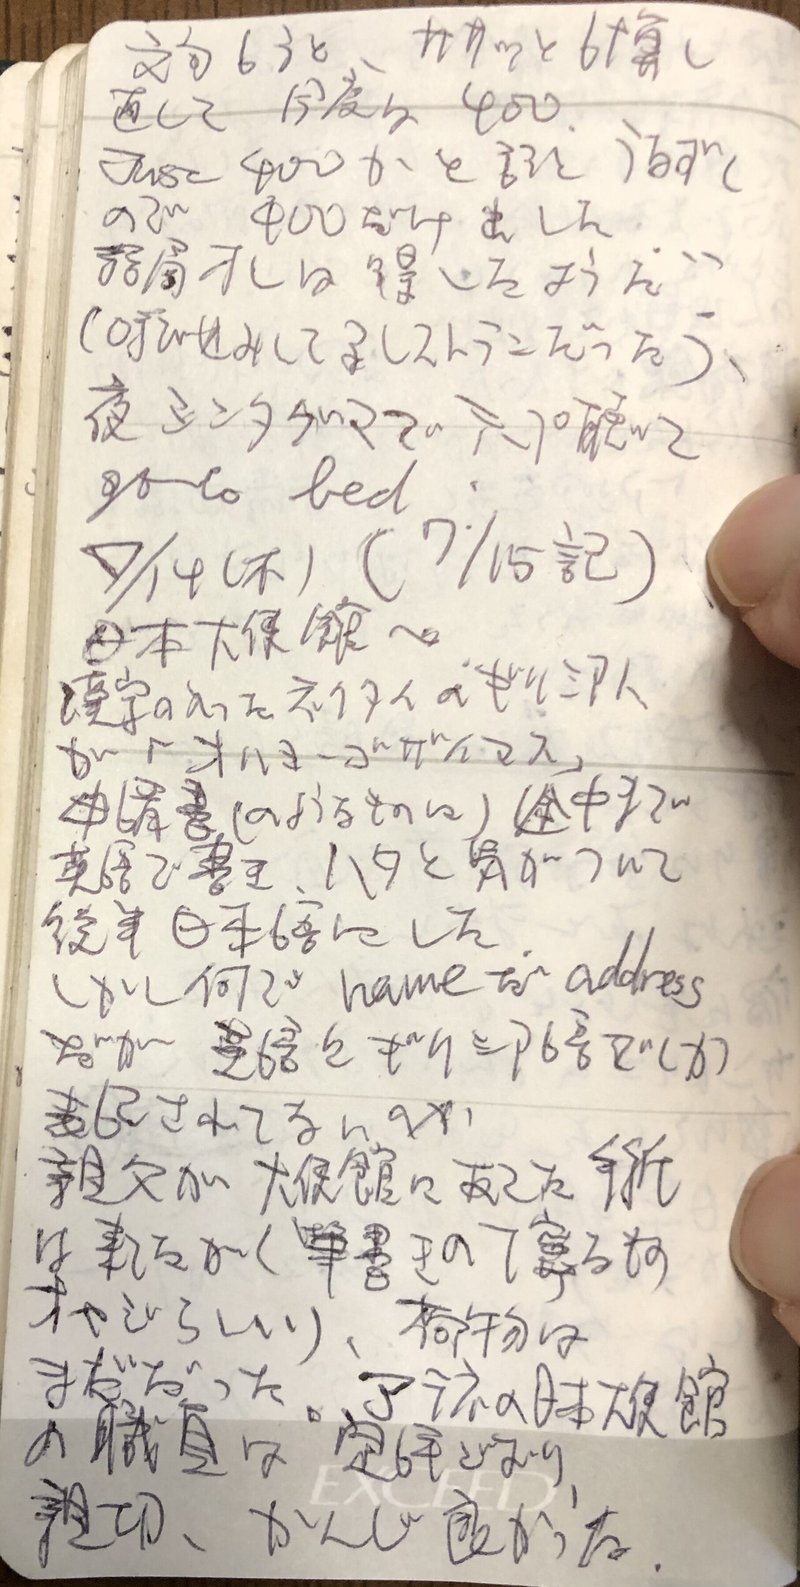 文句言うと、ササッと計算し
直して 今度は 400.
Just 400かと言うと うなずく
ので 400だけ出した.
結局オレは得したようだ
(呼び込みしてるレストランだった)、
夜 シンタグマで テープ聴いて
go to bed.
7/14(木) (7/15記)
日本大使館へ
漢字の入ったネクタイのギリシア人
が「オハヨーゴザイマス」
申請書(のようなものに)途中まで
英語で書き、ハタと気がついて
後半日本語にした.
しかし何で nameだ address
だが 英語とギリシア語でしか
表記されてないのか
親父が大使館にあてた手紙
は来てたが(筆書きの
オヤジらしい)、荷物は
まだだった。アテネの日本大使館
の職員は 定評どおり
親切、かんじ良かった.
EXCEED